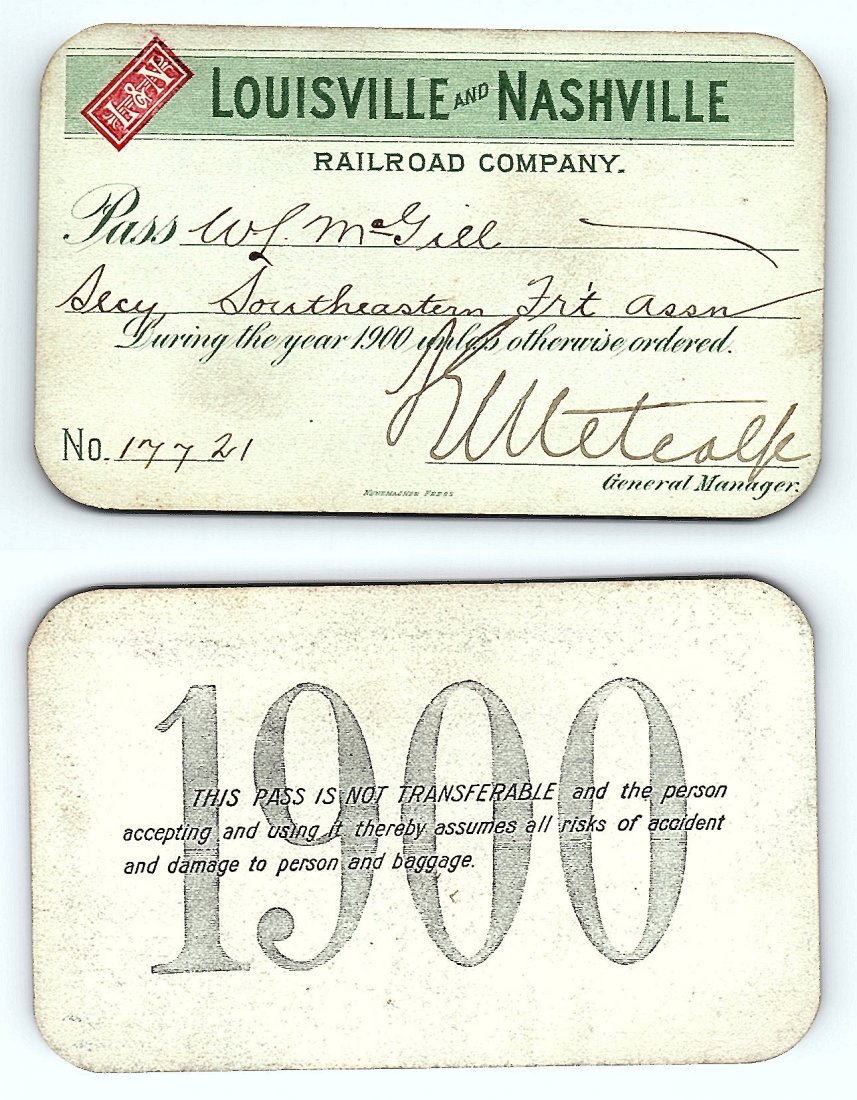 L&N
LOUISVILLE AND NASHVILLE
RAILROAD COMPANY.
Pass W J. McGill
Secy Southeastern Fr't Assn
During the year 1900 unless otherwise ordered.
No. 17721
Metcalfe
General Manager.
PRESS
1900
THIS PASS IS NOT TRANSFERABLE and the person
accepting and using it thereby assumes all risks of accident
and damage to person and baggage.